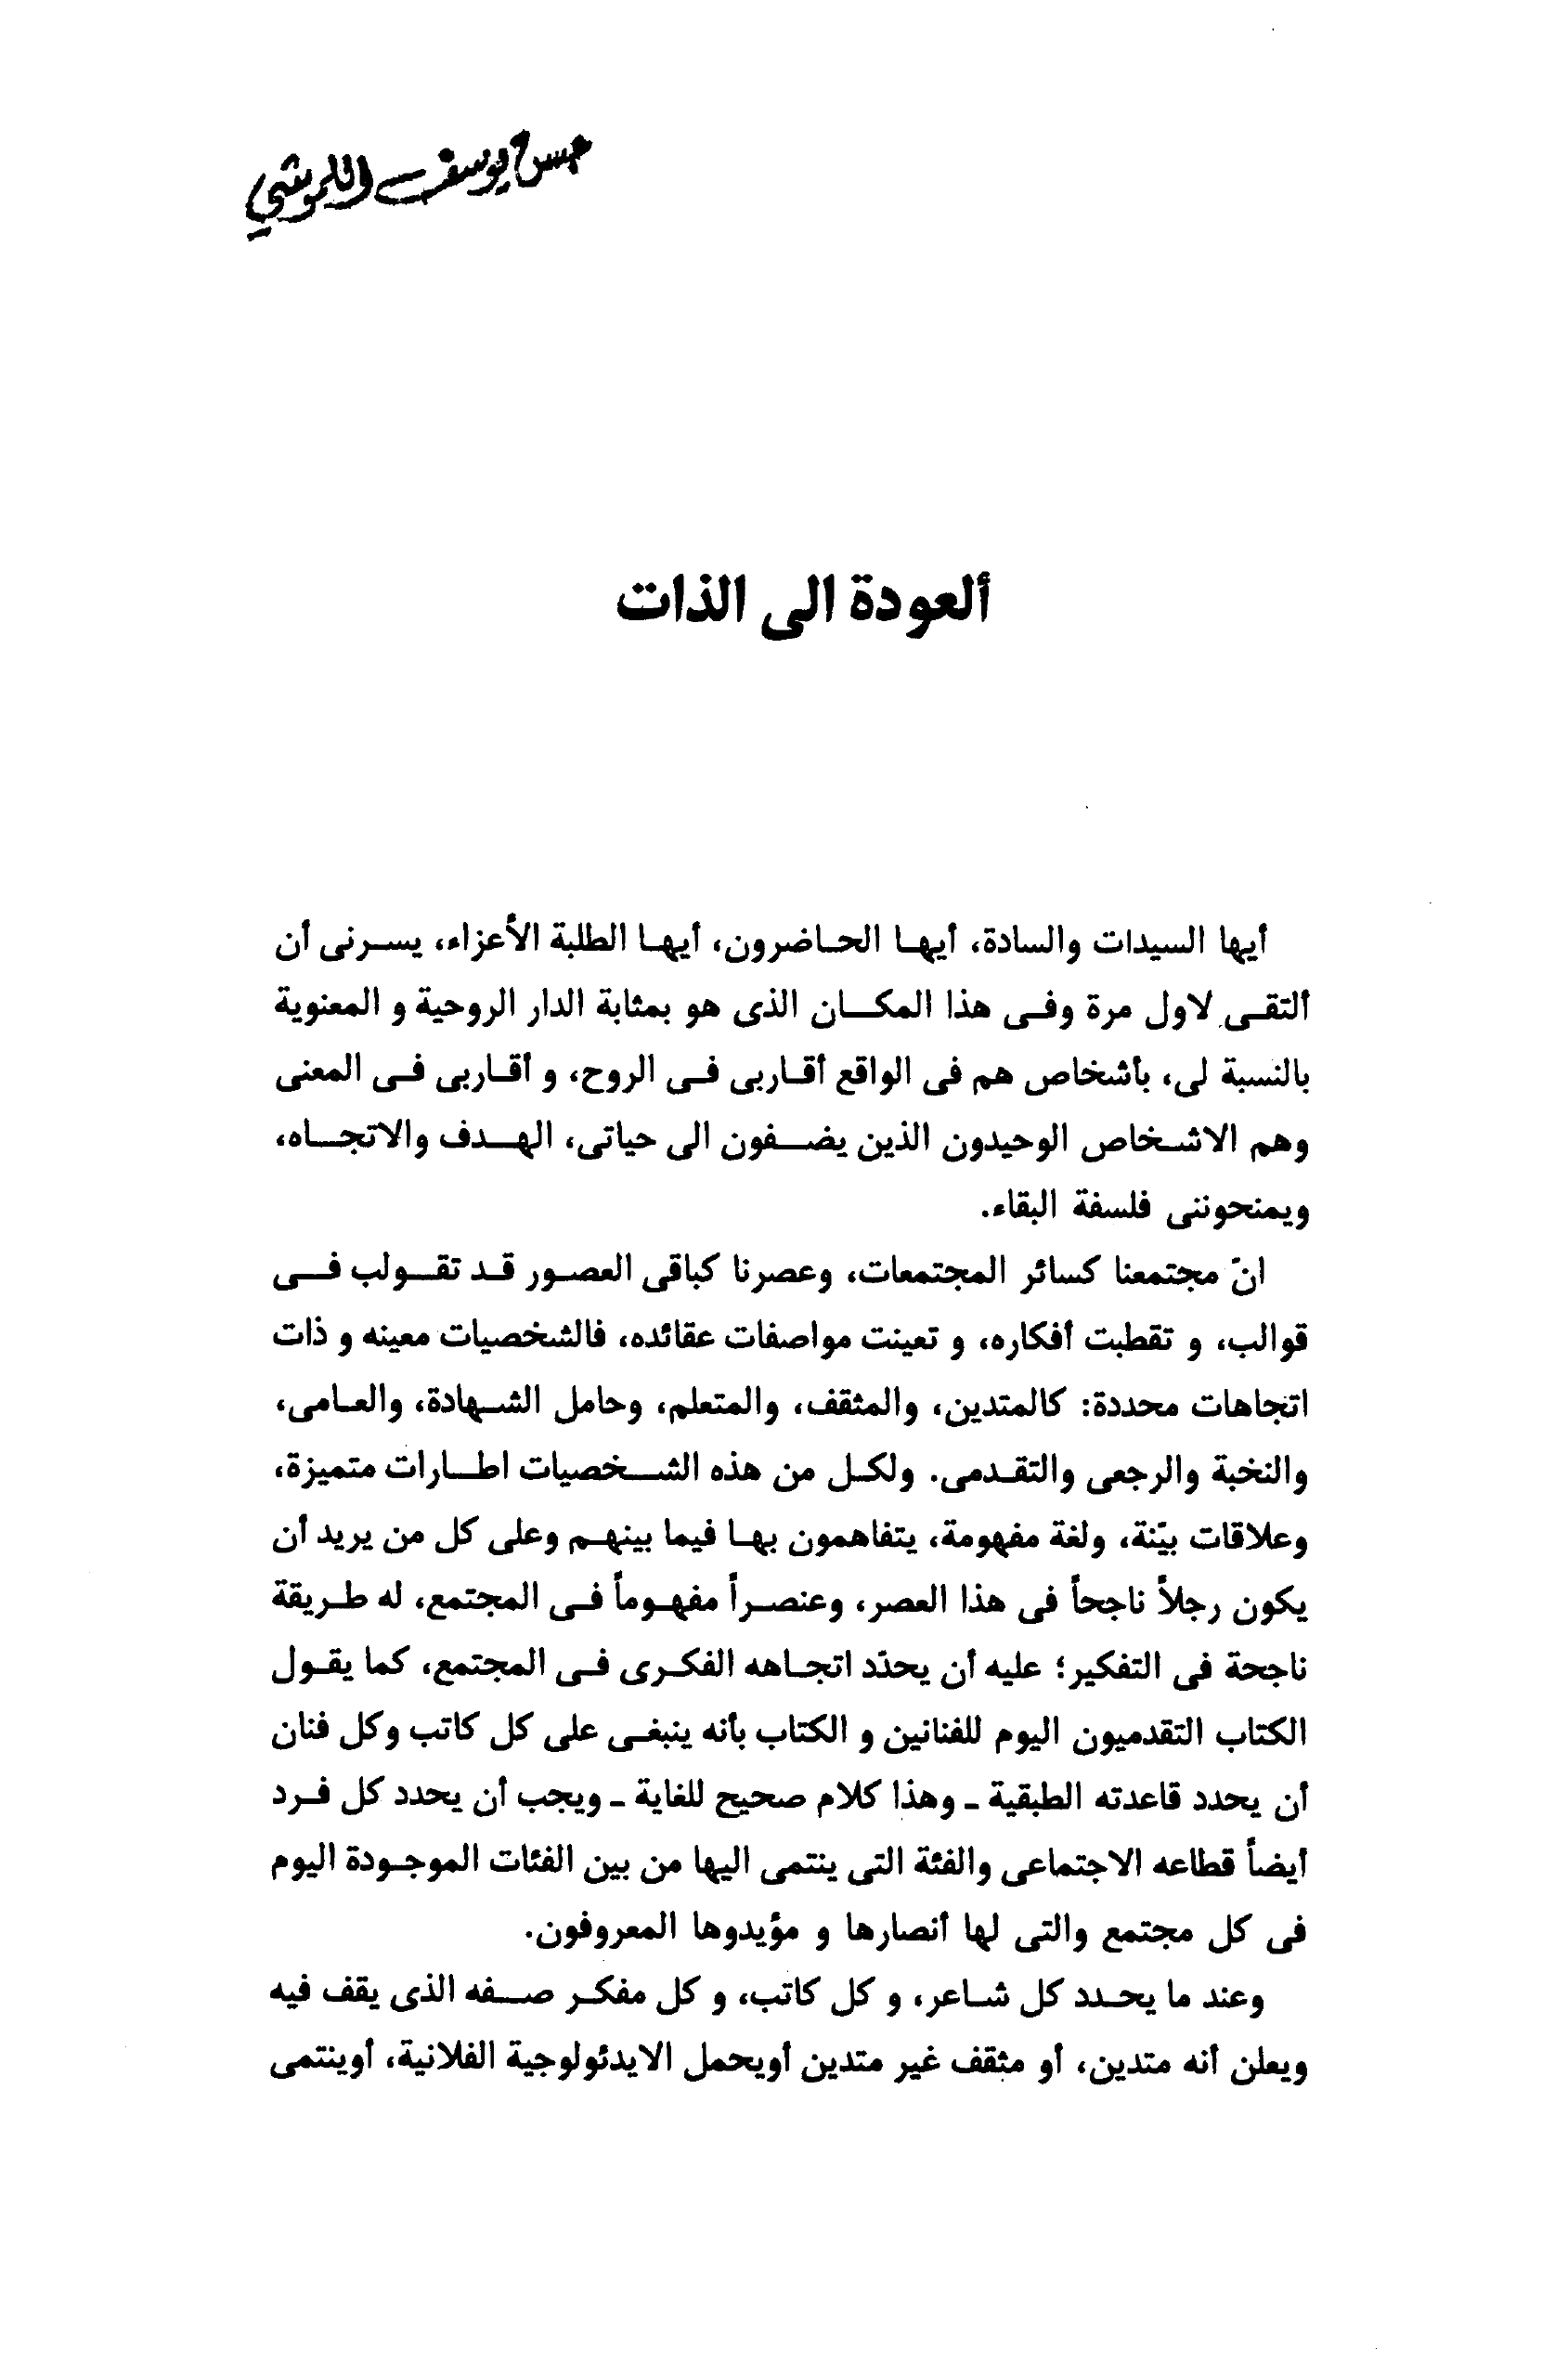 حسن يوسف
ألعودة الى الذات
أيها السيدات والسادة، أيها الحاضرون، أيها الطلبة الأعزاء، يسرنى أن
ألتقى لاول مرة وفى هذا المكان الذى هو بمثابة الدار الروحية و المعنوية
بالنسبة لى، بأشخاص هم فى الواقع أقاربى فى الروح، و أقاربى فى المعنى
وهم الاشخاص الوحيدون الذين يضفون الى حياتى، الهدف والاتجاه،
ويمنحوننى فلسفة البقاء.
انّ مجتمعنا كسائر المجتمعات، وعصرنا كباقى العصور قد تقولب فى
قوالب، و تقطبت أفكاره، و تعينت مواصفات عقائده، فالشخصيات معينه و ذات
اتجاهات محددة: كالمتدين، والمثقف، والمتعلم، وحامل الشهادة، والعامى،
والنخبة والرجعى والتقدمى. ولكل من هذه الشخصيات اطارات متميزة،
وعلاقات بيّنة، ولغة مفهومة، يتفاهمون بها فيما بينهم وعلى كل من يريد أن
يكون رجلاً ناجحاً فى هذا العصر، وعنصراً مفهوماً فى المجتمع، له طريقة
ناجحة فى التفكير؛ عليه أن يحدّد اتجاهه الفكرى فى المجتمع، كما يقول
الكتاب التقدميون اليوم للفنانين و الكتاب بأنه ينبغى على كل كاتب وكل فنان
أن يحدد قاعدته الطبقية ـ وهذا كلام صحيح للغاية ـ ويجب أن يحدد كل فرد
أيضاً قطاعه الاجتماعى والفئة التى ينتمى اليها من بين الفئات الموجودة اليوم
فى كل مجتمع والتى لها أنصارها و مؤيدوها المعروفون.
وعند ما يحدد كل شاعر، و كل كاتب، و كل مفكر صفه الذى يقف فيه
ويعلن أنه متدين، أو مثقف غير متدين أويحمل الايدئولوجية الفلانية، أوينتمى